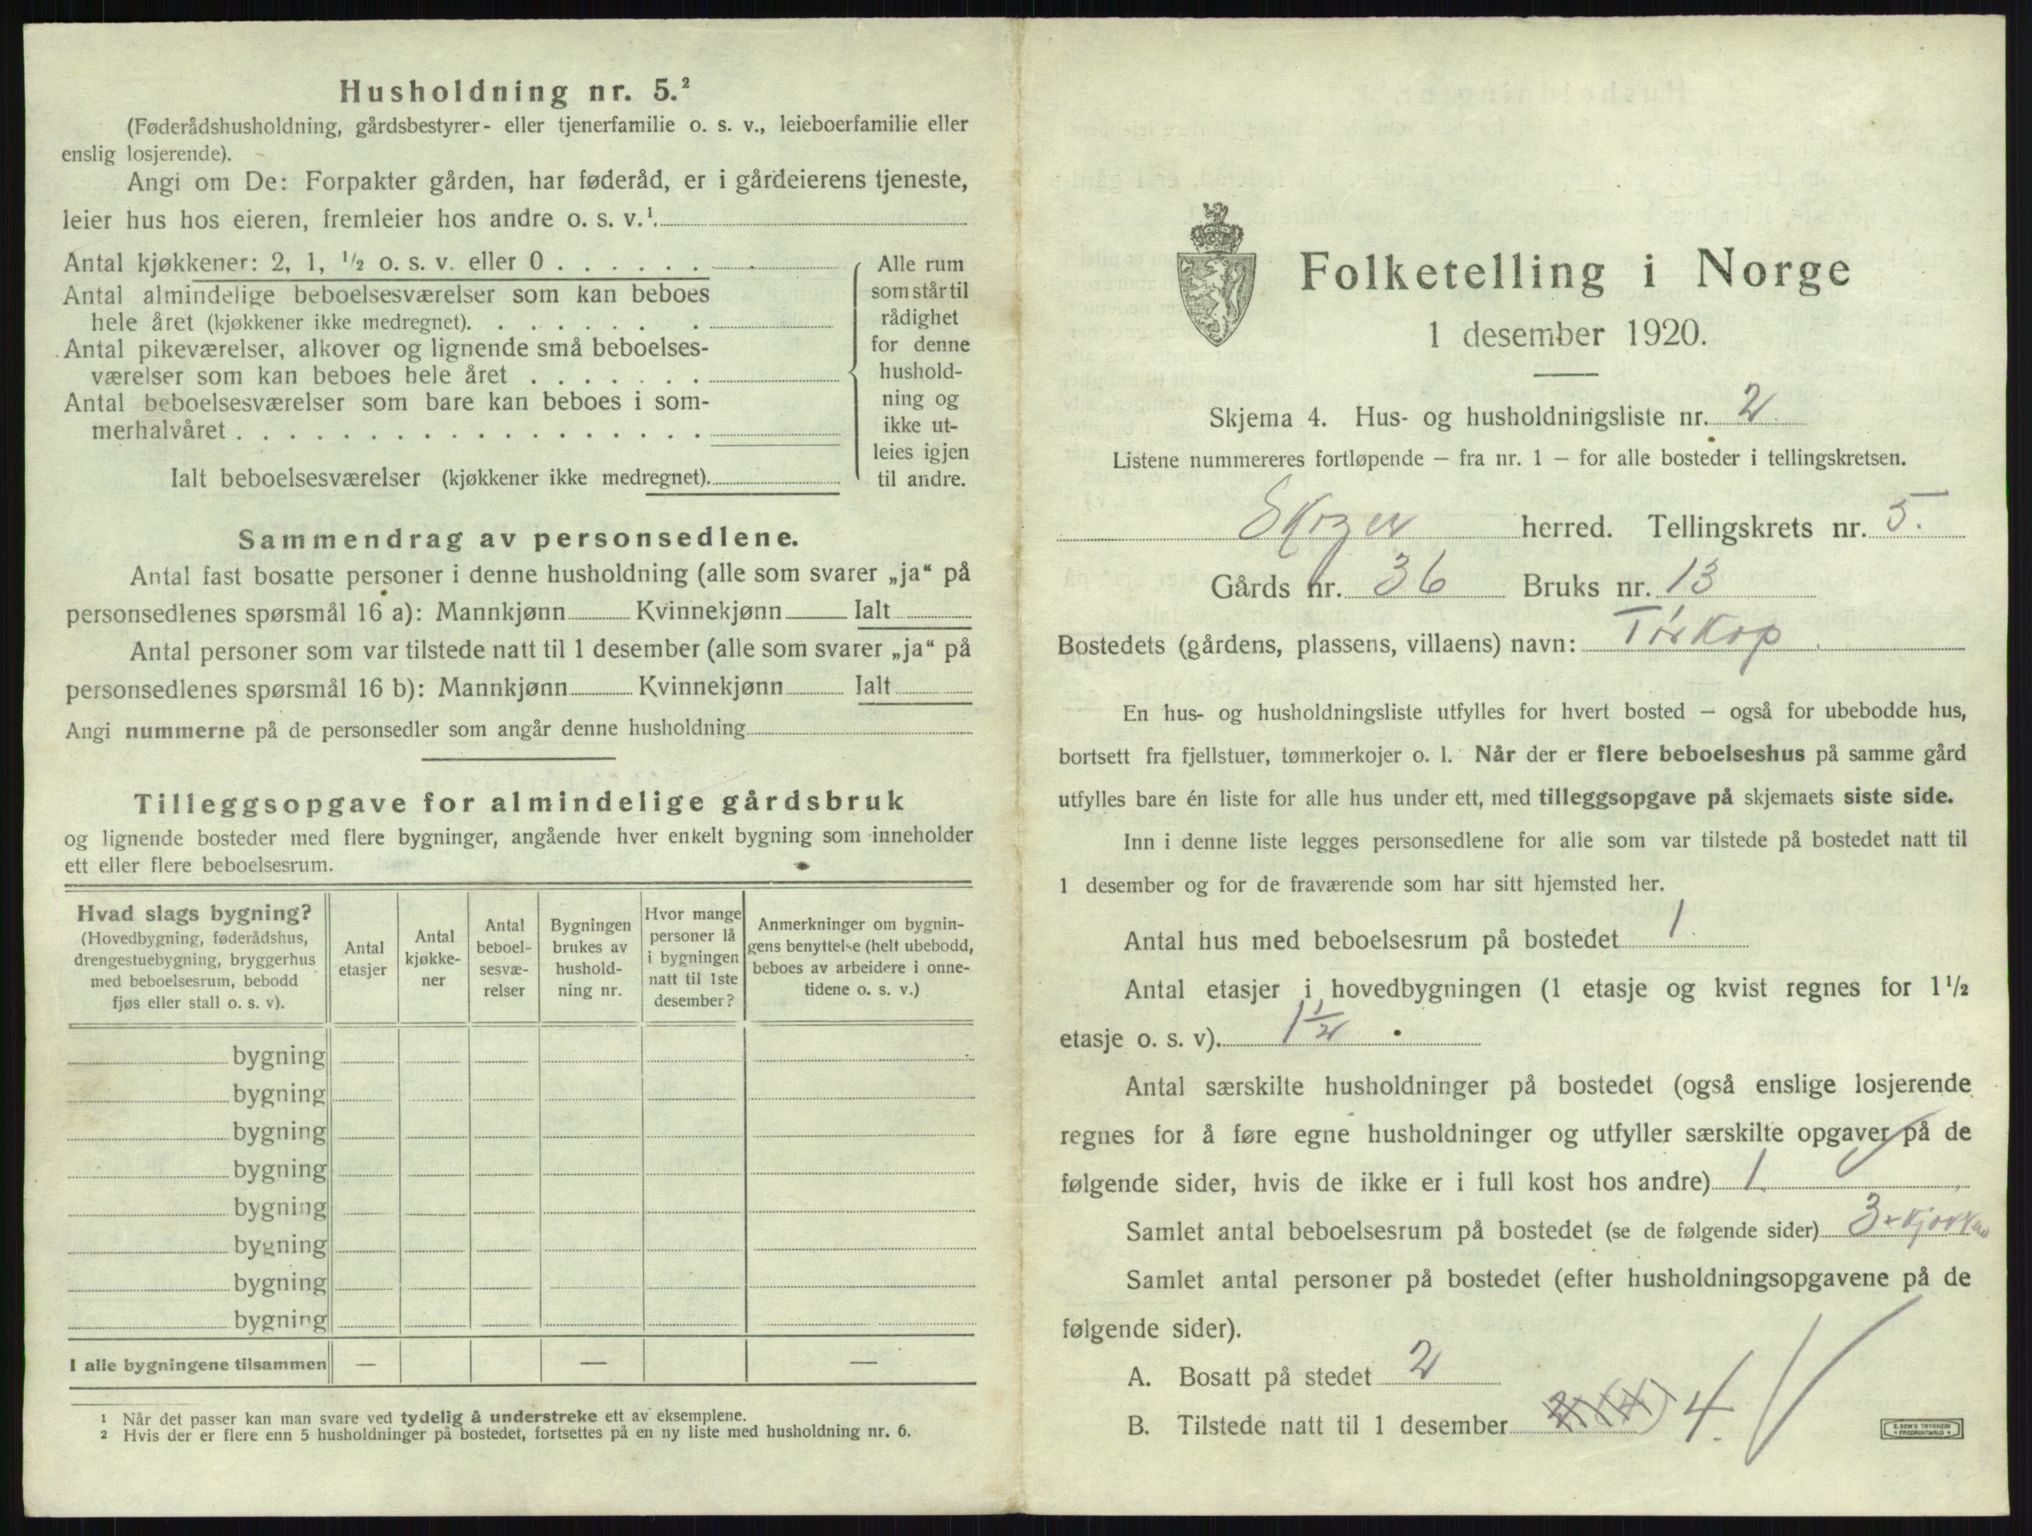 Husholdning nr. 5.²
(Føderådshusholdning, gårdsbestyrer- eller tjenerfamilie o. s. v., leieboerfamilie eller
enslig losjerende).
Angi om De: Forpakter gården, har føderåd, er i gårdeierens tjeneste,
leier hus hos eieren, fremleier hos andre o. s. v.¹
Antal kjøkkener: 2, 1, ½ o. s. v. eller 0 . . . . . .
Antal almindelige beboelsesværelser som kan beboes
hele året (kjøkkener ikke medregnet). . . . . . . .
Antal pikeværelser, alkover og lignende små beboelses-
værelser som kan beboes hele året . . . . . . .
Antal beboelsesværelser som bare kan beboes i som-
merhalvåret . . . . . . . . . . . . . . . . . .
Ialt beboelsesværelser (kjøkkener ikke medregnet).
Alle rum
som står til
rådighet
for denne
hushold-
ning og
ikke ut-
leies igjen
til andre.
Sammendrag av personsedlene.
Antal fast bosatte personer i denne husholdning (alle som svarer „ja“ på
personsedlenes spørsmål 16 a): Mannkjønn Kvinnekjønn Ialt
Antal personer som var tilstede natt til 1 desember (alle som svarer „ja“ på
personsedlenes spørsmål 16 b): Mannkjønn Kvinnekjønn Ialt
Angi nummerne på de personsedler som angår denne husholdning
Tilleggsopgave for almindelige gårdsbruk
og lignende bosteder med flere bygninger, angående hver enkelt bygning som inneholder
ett eller flere beboelsesrum.
Hvad slags bygning?
(Hovedbygning, føderådshus,
drengestuebygning, bryggerhus
med beboelsesrum, bebodd
fjøs eller stall o. s. v).
Antal
etasjer
Antal
kjøkke-
ner
Antal
beboel-
sesvæ-
relser
Bygningen
brukes av
hushold-
ning nr.
Hvor mange
personer lå
i bygningen
natt til 1ste
desember?
Anmerkninger om bygnin-
gens benyttelse (helt ubebodd,
beboes av arbeidere i onne-
tidene o. s. v.)
bygning
bygning
bygning
bygning
bygning
bygning
bygning
bygning
I alle bygningene tilsammen — — —
¹ Når det passer kan man svare ved tydelig å understreke ett av eksemplene.
² Hvis der er flere enn 5 husholdninger på bostedet, fortsettes på en ny liste med husholdning nr. 6.
Folketelling i Norge
1 desember 1920.
Skjema 4. Hus- og husholdningsliste nr. 2
Listene nummereres fortløpende — fra nr. 1 — for alle bosteder i tellingskretsen.
Skoger herred. Tellingskrets nr. 5.
Gårds nr. 36 Bruks nr. 13
Bostedets (gårdens, plassens, villaens) navn: Tørkop
En hus- og husholdningsliste utfylles for hvert bosted — også for ubebodde hus,
bortsett fra fjellstuer, tømmerkojer o. l. Når der er flere beboelseshus på samme gård
utfylles bare én liste for alle hus under ett, med tilleggsopgave på skjemaets siste side.
Inn i denne liste legges personsedlene for alle som var tilstede på bostedet natt til
1 desember og for de fraværende som har sitt hjemsted her.
Antal hus med beboelsesrum på bostedet 1
Antal etasjer i hovedbygningen (1 etasje og kvist regnes for 1½
etasje o. s. v). 1½
Antal særskilte husholdninger på bostedet (også enslige losjerende
regnes for å føre egne husholdninger og utfyller særskilte opgaver på de
følgende sider, hvis de ikke er i full kost hos andre) 1
Samlet antal beboelsesrum på bostedet (se de følgende sider) 3 +
Samlet antal personer på bostedet (efter husholdningsopgavene på de
følgende sider).
A. Bosatt på stedet 2
B. Tilstede natt til 1 desember 4.